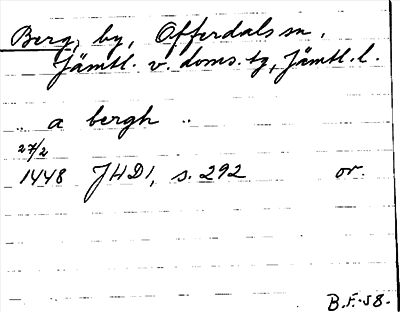 Berg, by, Offerdals sn.
Jämtl. v. doms. tg, Jämtl. l.
.. a bergh ..
27/2
1448 JHD1, s. 292 or.
B.F.-58.